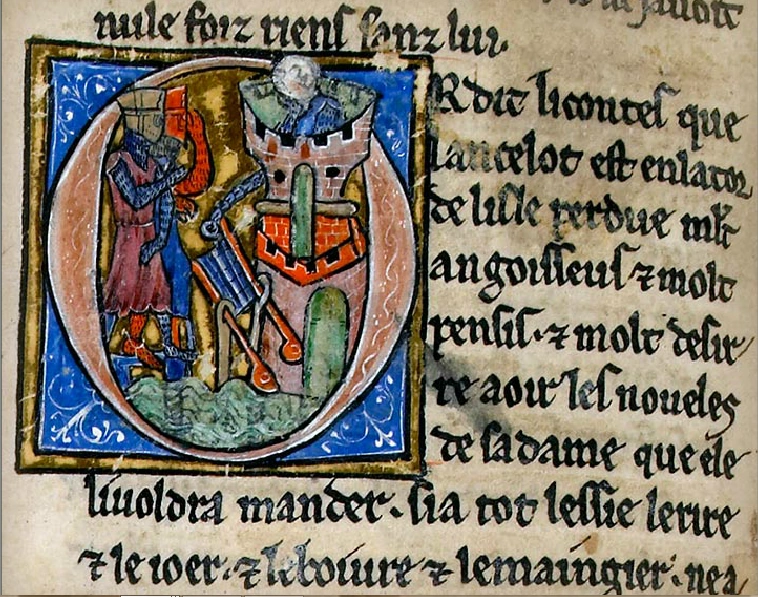 nule foiz riens sanz lui.
R dit li contes que
lancelot est en la tor
de lisle perdue mlt
angoisseus ⁊ molt
pensis. ⁊ molt desir
re a oir les noueles
de sa dame que ele
li uoldra mander. si a tot lessie le rire
⁊ le ioer. ⁊ le boiure ⁊ le maingier. ne a